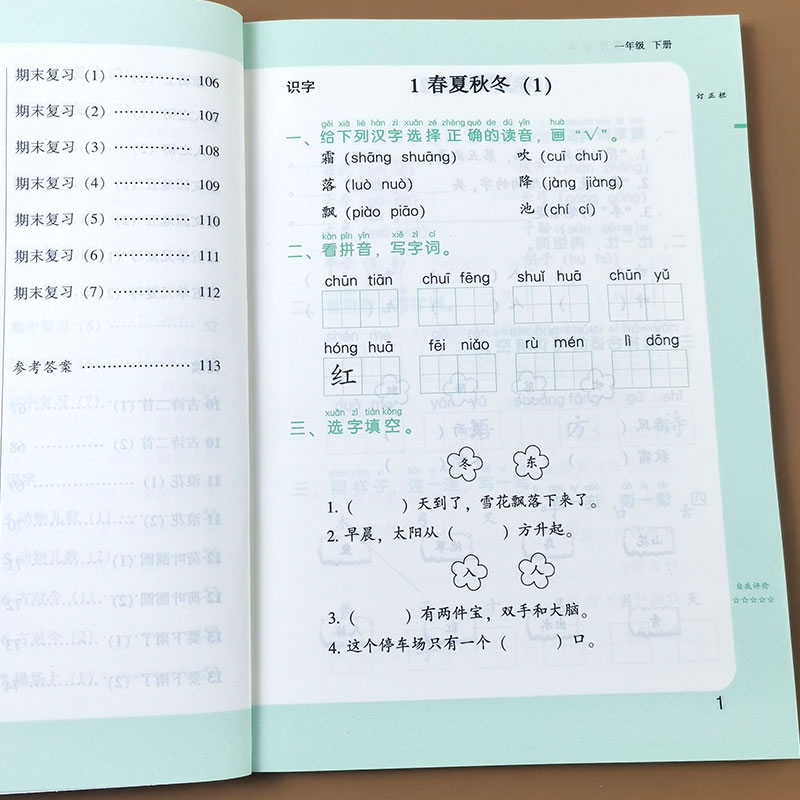 期末复习（1） ··············· 106
期末复习（2） ··············· 107
期末复习（3） ··············· 108
期末复习（4） ··············· 109
期末复习（5） ··············· 110
期末复习（6） ··············· 111
期末复习（7） ··············· 112
参考答案 ····················· 113
一年级 下册
识字
1 春夏秋冬（1）
订正栏
gěi xià liè hàn zì xuǎn zé zhèng què de dú yīn huà
一、给下列汉字选择正确的读音，画“√”。
霜（shāng shuāng） 吹（cuī chuī）
落（luò nuò） 降（jàng jiàng）
飘（piào piāo） 池（chí cí）
kàn pīn yīn xiě zì cí
二、看拼音，写字词。
chūn tiān chuī fēng shuǐ huā chūn yǔ
hóng huā fēi niǎo rù mén lì dōng
红
xuǎn zì tián kòng
三、选字填空。
冬 东
1.（ ）天到了，雪花飘落下来了。
2. 早晨，太阳从（ ）方升起。
入 人
3.（ ）有两件宝，双手和大脑。
4. 这个停车场只有一个（ ）口。
自我评价
☆☆☆☆☆
1